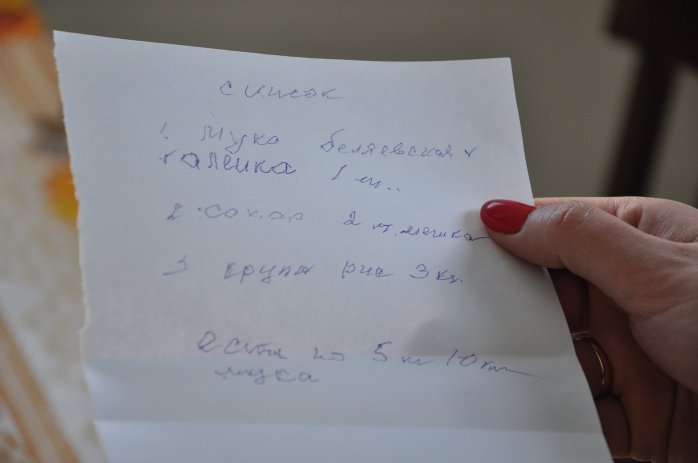 список
1. Мука беляевская
галейка 1 м..
2. сохор 2 кг. мешка
3 крупа рис 3 кг.
есть по 5 кг 10 кг
мука